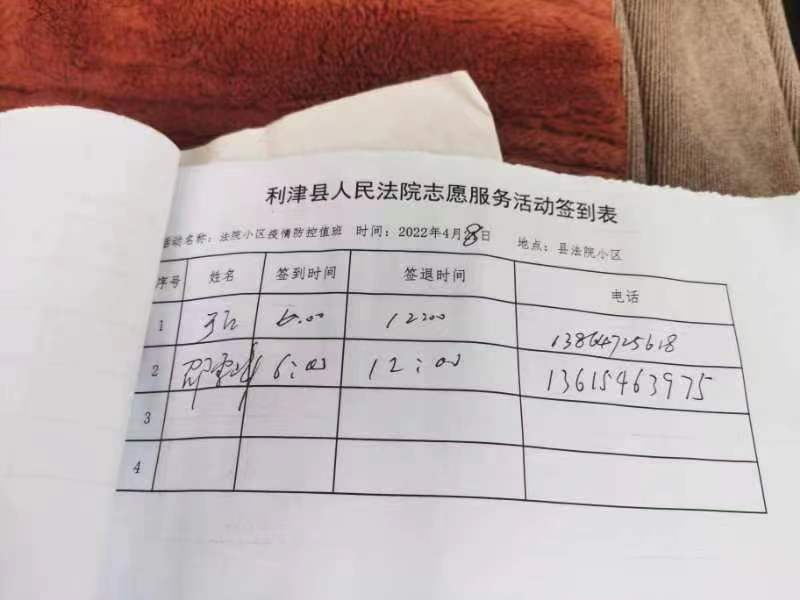 利津县人民法院志愿服务活动签到表
活动名称：法院小区疫情防控值班 时间：2022年4月8日 地点：县法院小区
序号 姓名 签到时间 签退时间 电话
1 6:00 12:00 13864725618
2 6:00 12:00 13615463975
3
4